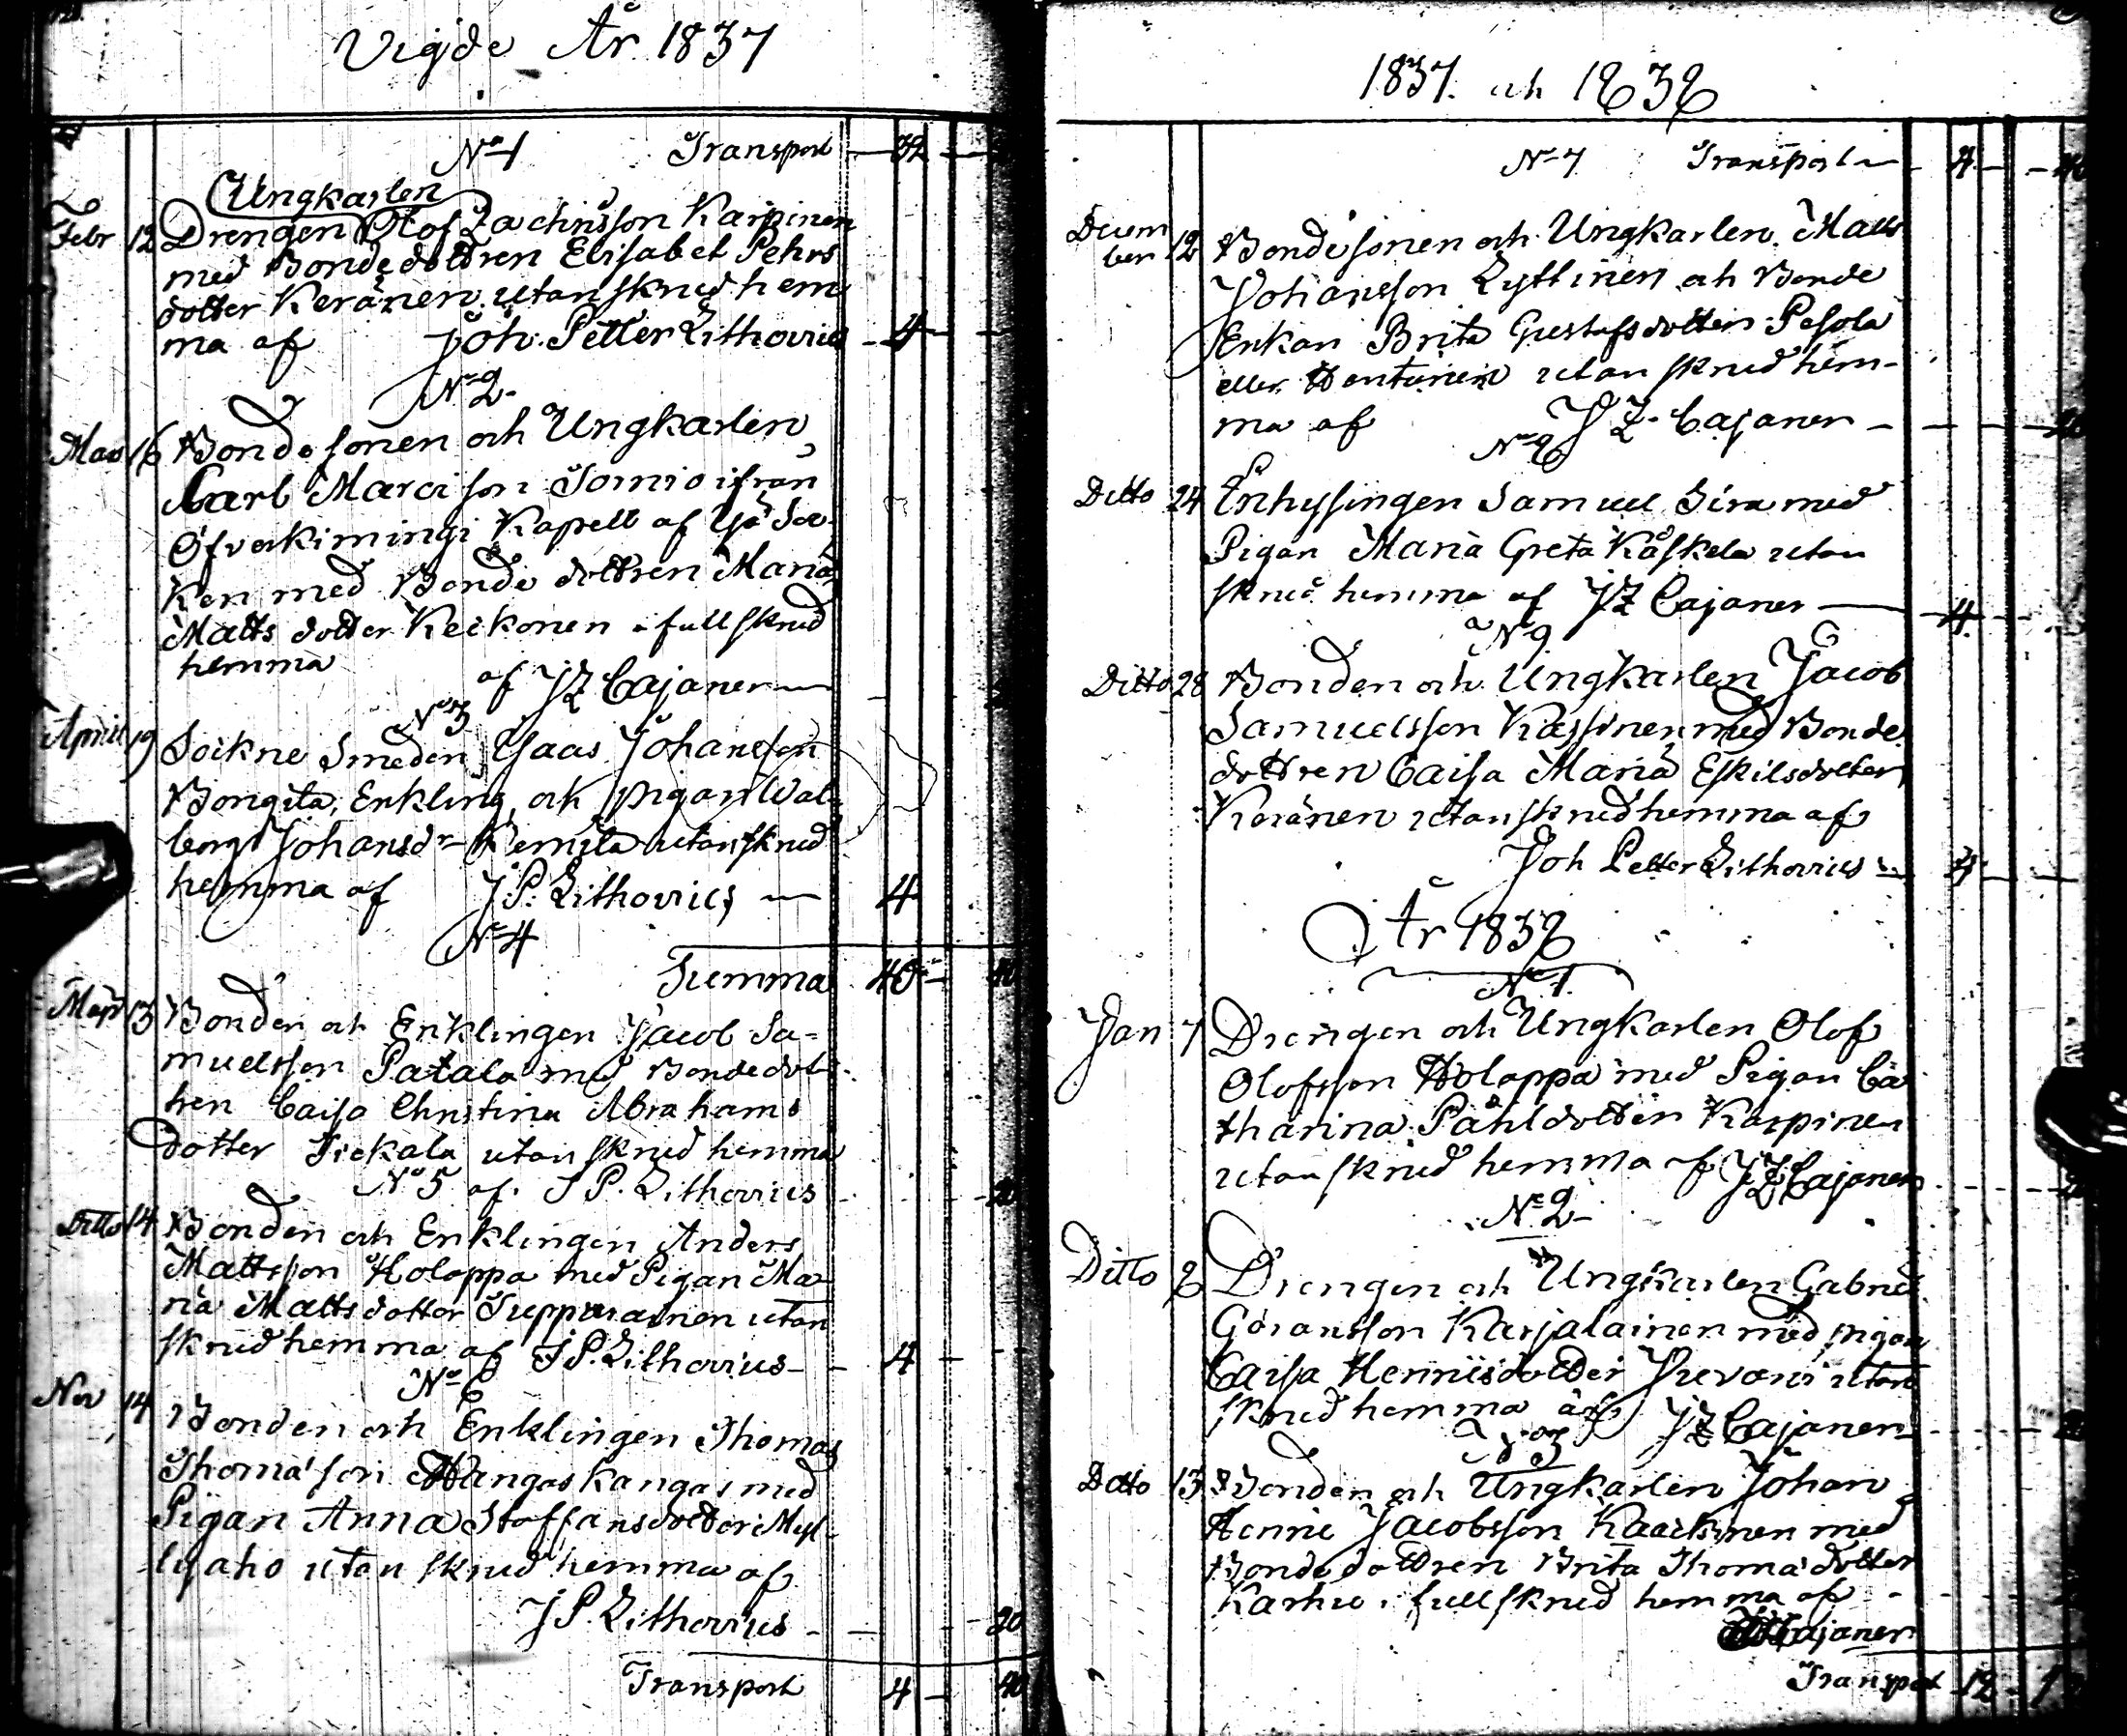 Vigde År 1837
No 1 Transport 32
Ungkarlen
Febr 12 Drengen Olof Zachrisson Karpinen
med Bondedottren Elisabet Pehrs
dotter Keränen utan skrud hem
ma af Joh. Petter Lithovius 4
No 2
Mars 16 Bondesonen och Ungkarlen
Carl Marcisson Tornio ifrån
Öfverkimingi Kapell af Ijo Soc
ken med Bonde dottren Maria
Matts dotter Keikonen i full skrud
hemma af JZ Cajaner
No 3
April 19 Sockne Smeden Isaac Johansson
Bongita, Enkling, och pigan Wal
borg Johansdr Kemila utan skrud
hemma af J P. Lithovius 4
No 4
Summa 40 40
Maji 13 Bonden och Enklingen Jacob Sa=
muelsson Patala med Bondedott
tren Caisa Christina Abrahams
dotter Tickala utan skrud hemma
No 5 af J P. Lithovius 20
Ditto 14 Bonden och Enklingen Anders
Mattsson Holappa med Pigan Ma
ria Mattsdotter Tuppurainen utan
skrud hemma af J P. Lithovius 4
No 6
Nov 14 Bonden och Enklingen Thomas
Thomæson Hangaskangas med
Pigan Anna Staffansdotter Myl-
lyaho utan skrud hemma af
J P. Lithovius 20
Transport 4 40
1837. och 1838
No 7 Transport 4 40
Decem
ber 12 Bondesonen och Ungkarlen Matts
Johansson Lyttinen och Bonde
Enkan Brita Gustafsdotter Pesola
eller Hentunen utan skrud hem-
ma af J Z. Cajaner 20
No 8
Ditto 24 Enhysingen Samuel Sira med
Pigan Maria Greta Kåskela utan
skrud hemma af JZ Cajaner 4
No 9
Ditto 28 Bonden och Ungkarlen Jacob
Samuelsson Kassinen med Bonde
dottren Caisa Maria Eskilsdotter
Keränen utan skrud hemma af
Joh Petter Lithovius 4
År 1838
No 1
Jan 7 Drengen och Ungkarlen Olof
Olofsson Holappa med Pigan Ca
tharina Påhlsdotter Karpinen
utan skrud hemma af JZ Cajaner
No 2
Ditto 8 Drengen och Ungkarlen Gabriel
Göransson Karjalainen med pigan
Caisa Hennesdotter Juvani utan
skrud hemma af JZ Cajaner
No 3
Ditto 13 Bonden och Ungkarlen Johan
Henric Jacobsson Kaackinen med
Bondedottren Brita Thomædotter
Karhu i full skrud hemma af
Cajaner
Transport 12 1